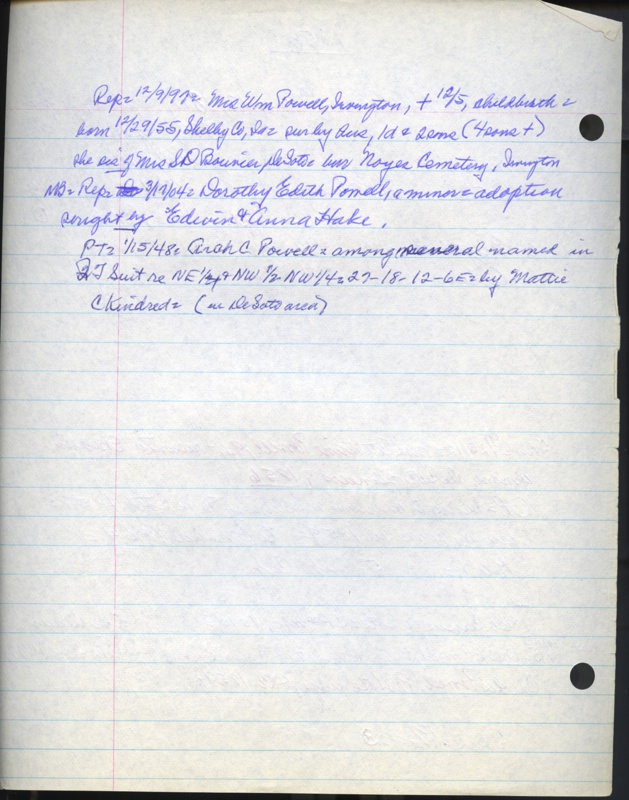 Rep= 12/9/97= Mrs Wm Powell, Irvington, + 12/5, childbirth =
born 12/29/55, Shelby Co, Ia= sur by hus, 1d & 2sons (4sons +)
she sis of Mrs S D Bouvier, DeSoto= bur Noyes Cemetery, Irvington
NB= Rep= 3/17/04= Dorothy Edith Powell, a minor= adoption
sought by Edwin & Anna Hake.
PT= 1/15/48= Arah C Powell = among several named in
QT Suit re NE 1/4 & NW 1/2 - NW 1/4= 27-18-12-6E= by Mattie
C Kindred= (in DeSoto area)